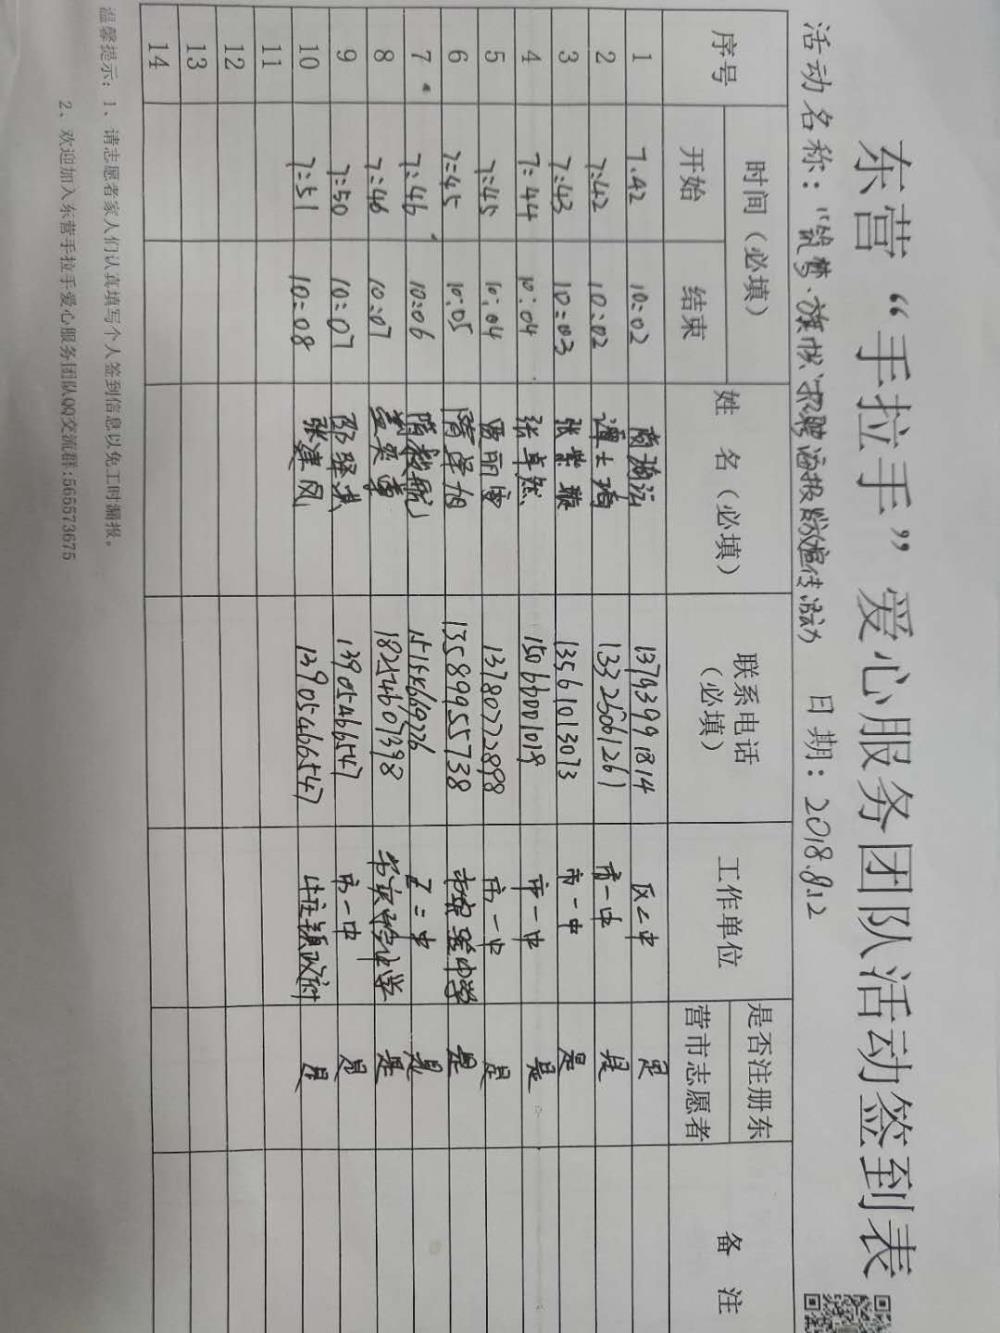 东营“手拉手”爱心服务团队活动签到表
活动名称：“筑梦·旗帜”招聘海报发放宣传活动 日期：2018.8.12
序号 时间（必填） 姓 名（必填） 联系电话（必填） 工作单位 是否注册东营市志愿者 备 注
开始 结束
1 7:42 10:02 13793991814 区二中 是
2 7:42 10:02 谭士琦 13325061261 市一中 是
3 7:43 10:03 张紫璇 13561013073 市一中 是
4 7:44 10:04 张卓然 15066001019 市一中 是
5 7:45 10:04 13780772898 市一中 是
6 7:45 10:05 隋泽旭 13589955738 市实验中学 是
7 7:46 10:06 隋毅航 15154669276 二中 是
8 7:46 10:07 18254607398 是
9 7:50 10:07 邵泽其 13905466547 市一中 是
10 7:51 10:08 张建风 13905466547 牛庄镇政府 是
11
12
13
14
温馨提示：1、请志愿者家人们认真填写个人签到信息以免工时漏报。
2、欢迎加入东营手拉手爱心服务团队QQ交流群:565573675